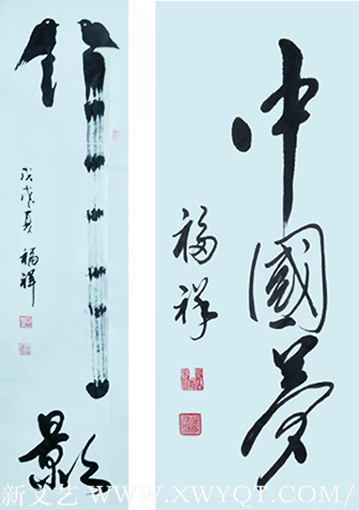 竹影
戊戌夏 福祥
中國夢
福祥
新文艺 WWW.XWYQT.COM/